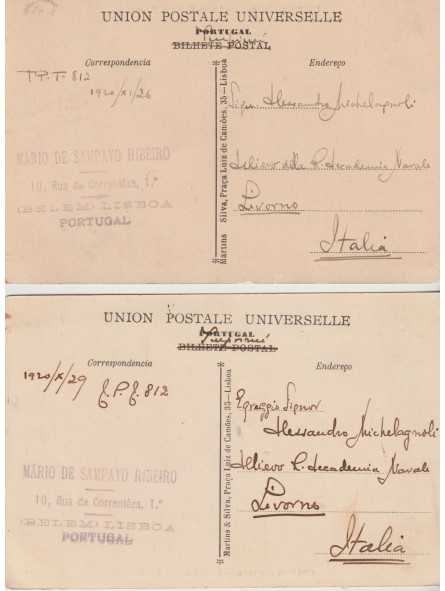 UNION POSTALE UNIVERSELLE
PORTUGAL
BILHETE POSTAL
Correspondencia
Endereço
T.P.T. 812
1920/XI/26
Alessandro Michelagnoli
MARIO DE SAMPAYO RIBEIRO
10, Rua da Correntées, 1.º
(BELEM) LISBOA
PORTUGAL
Allievo della R. Accademia Navale
Livorno
Italia
Martins & Silva, Praça Luiz de Camões, 35—Lisboa
UNION POSTALE UNIVERSELLE
PORTUGAL
BILHETE POSTAL
Correspondencia
Endereço
1920/X/29
812
Egreggio Signor
Alessandro Michelagnoli
Allievo R. Accademia Navale
Livorno
Italia
MARIO DE SAMPAYO RIBEIRO
10, Rua da Correntées, 1.º
(BELEM) LISBOA
PORTUGAL
Martins & Silva, Praça Luiz de Camões, 35—Lisboa